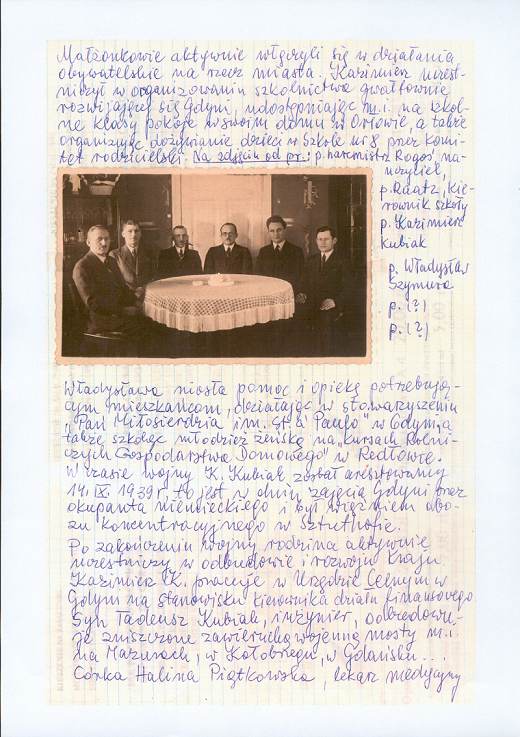 Małżonkowie aktywnie włączyli się w działania
obywatelskie na rzecz miasta. Kazimierz uczest-
niczył w organizowaniu szkolnictwa gwałtownie
rozwijającej się Gdyni, udostępniając m.i. na szkol-
ne klasy pokoje w swoim domu w Orłowie, a także
organizując dożywianie dzieci w Szkole nr 8 przez komi-
tet rodzicielski. Na zdjęciu od pr.: p. harcmistrz Rogoś, na-
uczyciel,
p. Raatz, kie-
rownik szkoły
p. Kazimierz
Kubiak
p. Władysław
Szymura
p. (?)
p. (?)
Władysława niosła pomoc i opiekę potrzebują-
cym mieszkańcom, działając w stowarzyszeniu
„Pań Miłosierdzia im. St. á Paulo" w Gdyni, a
także szkoląc młodzież żeńską na „kursach Rolni-
czych Gospodarstwa Domowego" w Redłowie.
W czasie wojny K. Kubiak został aresztowany
14. IX. 1939 r. to jest w dniu zajęcia Gdyni przez
okupanta niemieckiego i był więźniem obo-
zu koncentracyjnego w Sztuthofie.
Po zakończeniu wojny rodzina aktywnie
uczestniczy w odbudowie i rozwoju kraju.
Kazimierz K. pracuje w Urzędzie Celnym w
Gdyni na stanowisku kierownika działu finansowego
Syn Tadeusz Kubiak, inżynier, odbudowu-
je zniszczone zawieruchą wojenną mosty m.i.
na Mazurach, w Kołobrzegu, w Gdańsku...
Córka Halina Piątkowska, lekarz medycyny